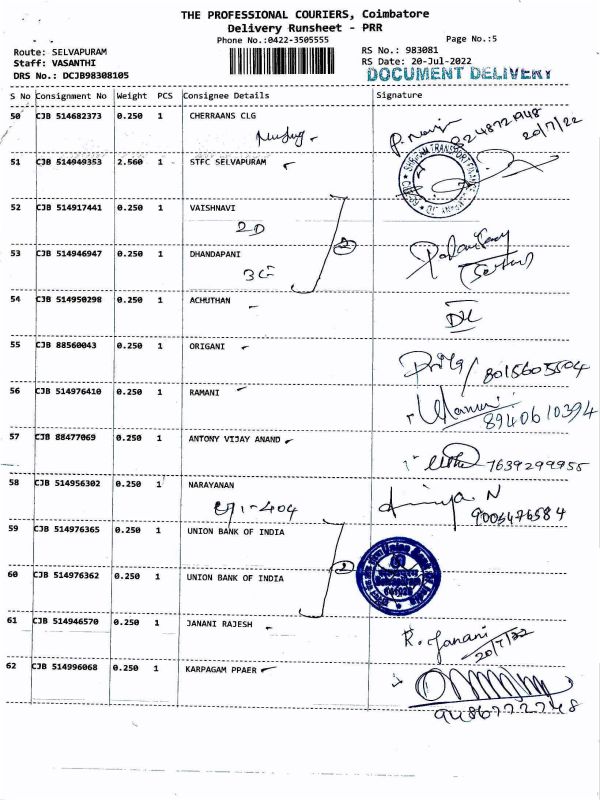 THE PROFESSIONAL COURIERS, Coimbatore
Delivery Runsheet - PRR
Phone No.:0422-3505555
Page No.:5
Route: SELVAPURAM
RS No.: 983081
Staff: VASANTHI
RS Date: 20-Jul-2022
DRS No.: DCJB98308105
DOCUMENT DELIVERY
S No Consignment No Weight PCS Consignee Details Signature
50 CJB 514682373 0.250 1 CHERRAANS CLG
20/7/22
51 CJB 514949353 2.560 1 STFC SELVAPURAM
52 CJB 514917441 0.250 1 VAISHNAVI
2D
2
53 CJB 514946947 0.250 1 DHANDAPANI
54 CJB 514950298 0.250 1 ACHUTHAN
55 CJB 88560043 0.250 1 ORIGANI
8015605504
56 CJB 514976410 0.250 1 RAMANI
8940610394
57 CJB 88477069 0.250 1 ANTONY VIJAY ANAND
7639299955
58 CJB 514956302 0.250 1 NARAYANAN
9003476584
59 CJB 514976365 0.250 1 UNION BANK OF INDIA
2
Union Bank of India
60 CJB 514976362 0.250 1 UNION BANK OF INDIA
61 CJB 514946570 0.250 1 JANANI RAJESH
R. Janani
20/7/22
62 CJB 514996068 0.250 1 KARPAGAM PPAER
9486772748